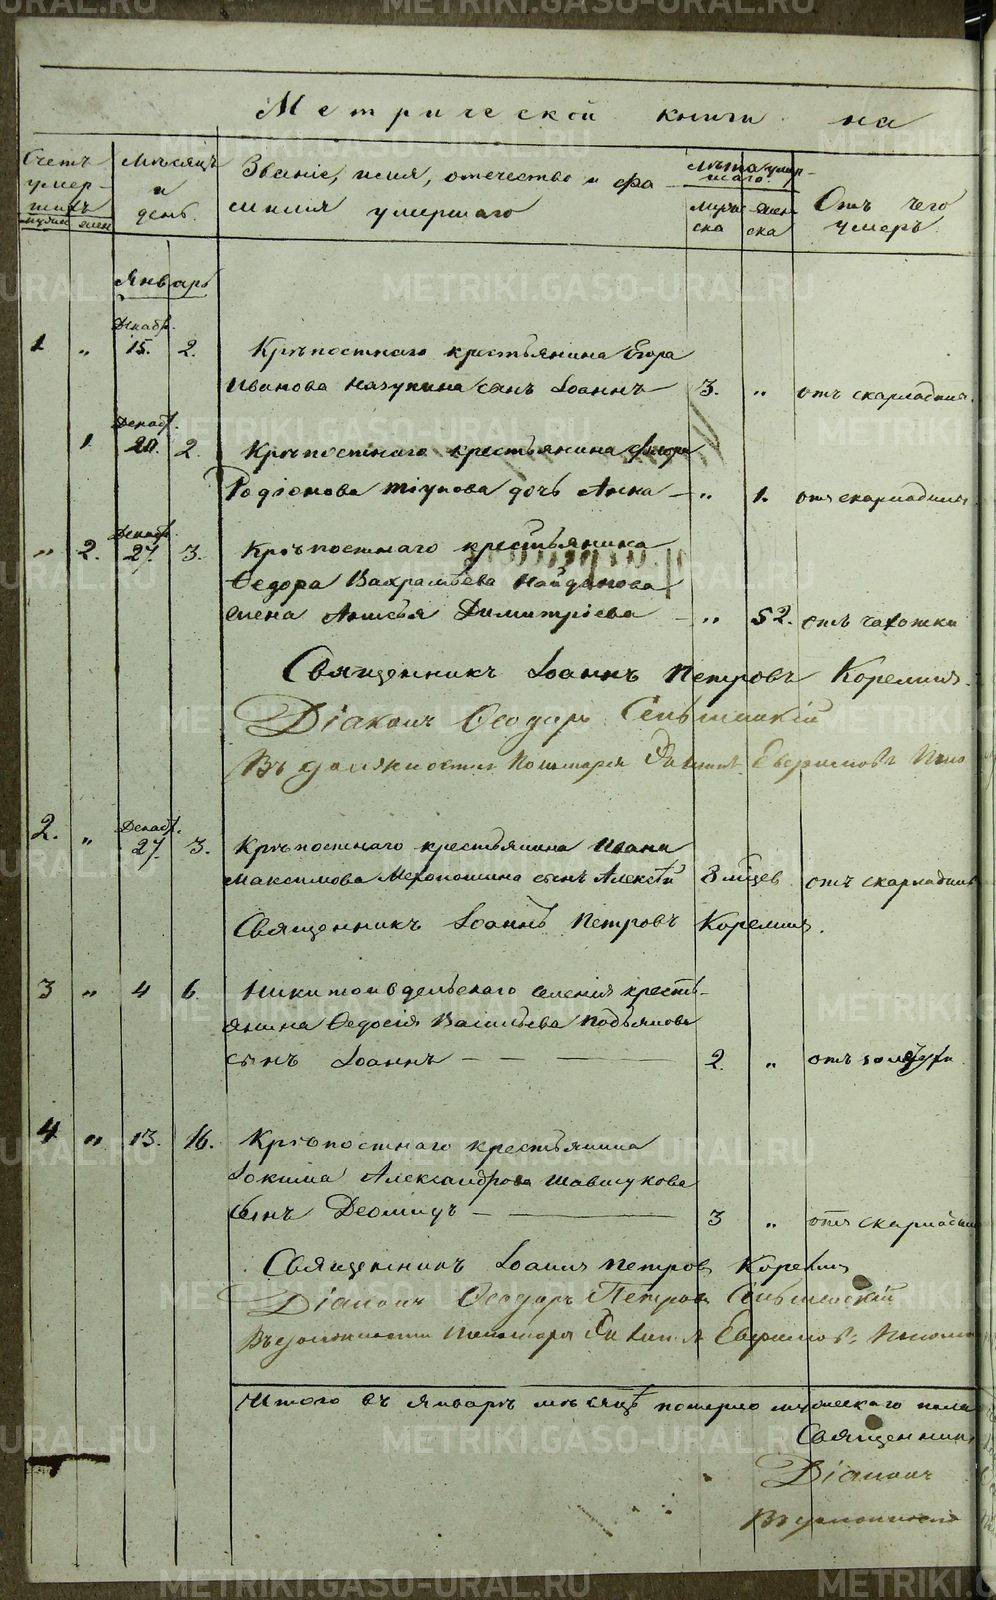 Метрической книги на
Счетъ умер-шихъ
мужес. женс.
Мѣсяцъ и день.
Званіе, имя, отечество и фа-
милія умершаго
Лѣта умер-шаго.
мужес-ска
жен-ска
Отъ чего умеръ.
Январь
Декабр.
1 „ 15. 2. Крѣпостнаго крестьянина Егора
Иванова сынъ Іоаннъ 3. „ отъ скарладины.
Декабр.
1. 20. 2. Крѣпостнаго крестьянина Флора
Родіонова Тіунова дочь Анна „ 1. отъ скарладины
Декабр.
„ 2. 27. 3. Крѣпостнаго крестьянина
Ѳедора Вахрамѣева Найданова
жена Анисья Димитріева „ 52. отъ чахотки
Священникъ Іоаннъ Петровъ Корелинъ.
Діаконъ Ѳеодоръ
Въ должности Пономаря Евфимовъ
Декабр.
2. „ 27. 3. Крѣпостнаго крестьянина Ивана
Максимова сынъ Алексѣй 8 мѣцев отъ скарладины
Священникъ Іоаннъ Петровъ Корелинъ.
3 „ 4 6. селенія кресть-
янина Ѳедосія Васильева
сынъ Іоаннъ 2. „ отъ
4 „ 13. 16. Крѣпостнаго крестьянина
Іокима Александрова Шавшукова
сынъ Деомидъ 3 „ отъ скарладины
Священникъ Іоаннъ Петров Корелин
Діаконъ Ѳеодоръ Петров
Въ должности Пономаря Евфимовъ
Итого въ Январѣ мѣсяцѣ померло мужескаго пола
Священникъ
Діаконъ
Въ должности
METRIKI.GASO-URAL.RU